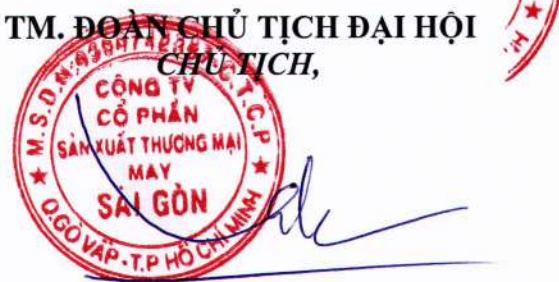 TM. ĐOÀN CHỦ TỊCH ĐẠI HỘI
CHỦ TỊCH,
CÔNG TY
CỔ PHẦN
SẢN XUẤT THƯƠNG MẠI
MAY
SÀI GÒN
Q.GÒ VẤP - T.P HỒ CHÍ MINH